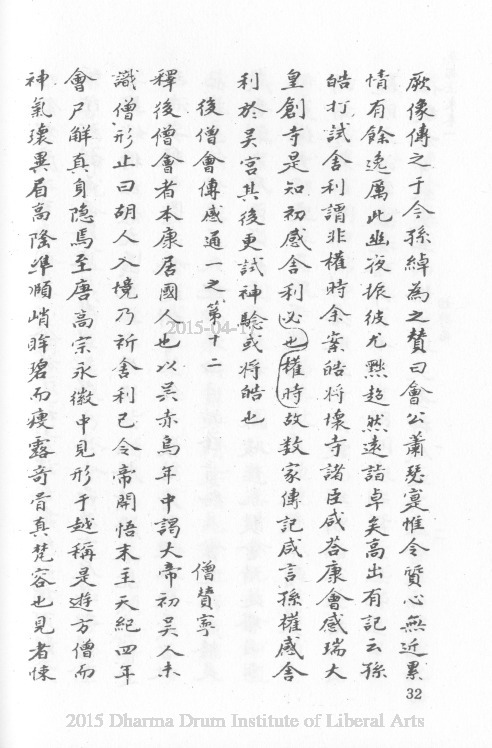 厥像傳之于今孫綽為之贊曰會公蕭瑟寔惟令質心無近累
情有餘逸厲此幽夜振彼尤黜超然遠詣卓矣高出有記云孫
皓打試舍利謂非權時余案皓將壞寺諸臣咸荅康會感瑞大
皇創寺是知初感舍利必也權時故数家傳記咸言孫權感舍
利於吴宫其後更試神驗或将皓也
後僧會傳感通一之第十二
僧賛寧
釋後僧會者本康居國人也以吴赤烏年中謁大帝初吴人未
識僧形止曰胡人入境乃祈舍利已令帝開悟末主天紀四年
會尸解真身隐焉至唐高宗永徽中見形于越稱是遊方僧而
神氣瓌異眉高隆準頤峭眸碧而瘦露奇骨真梵容也見者悚
32
2015-04-1
2015 Dharma Drum Institute of Liberal Arts